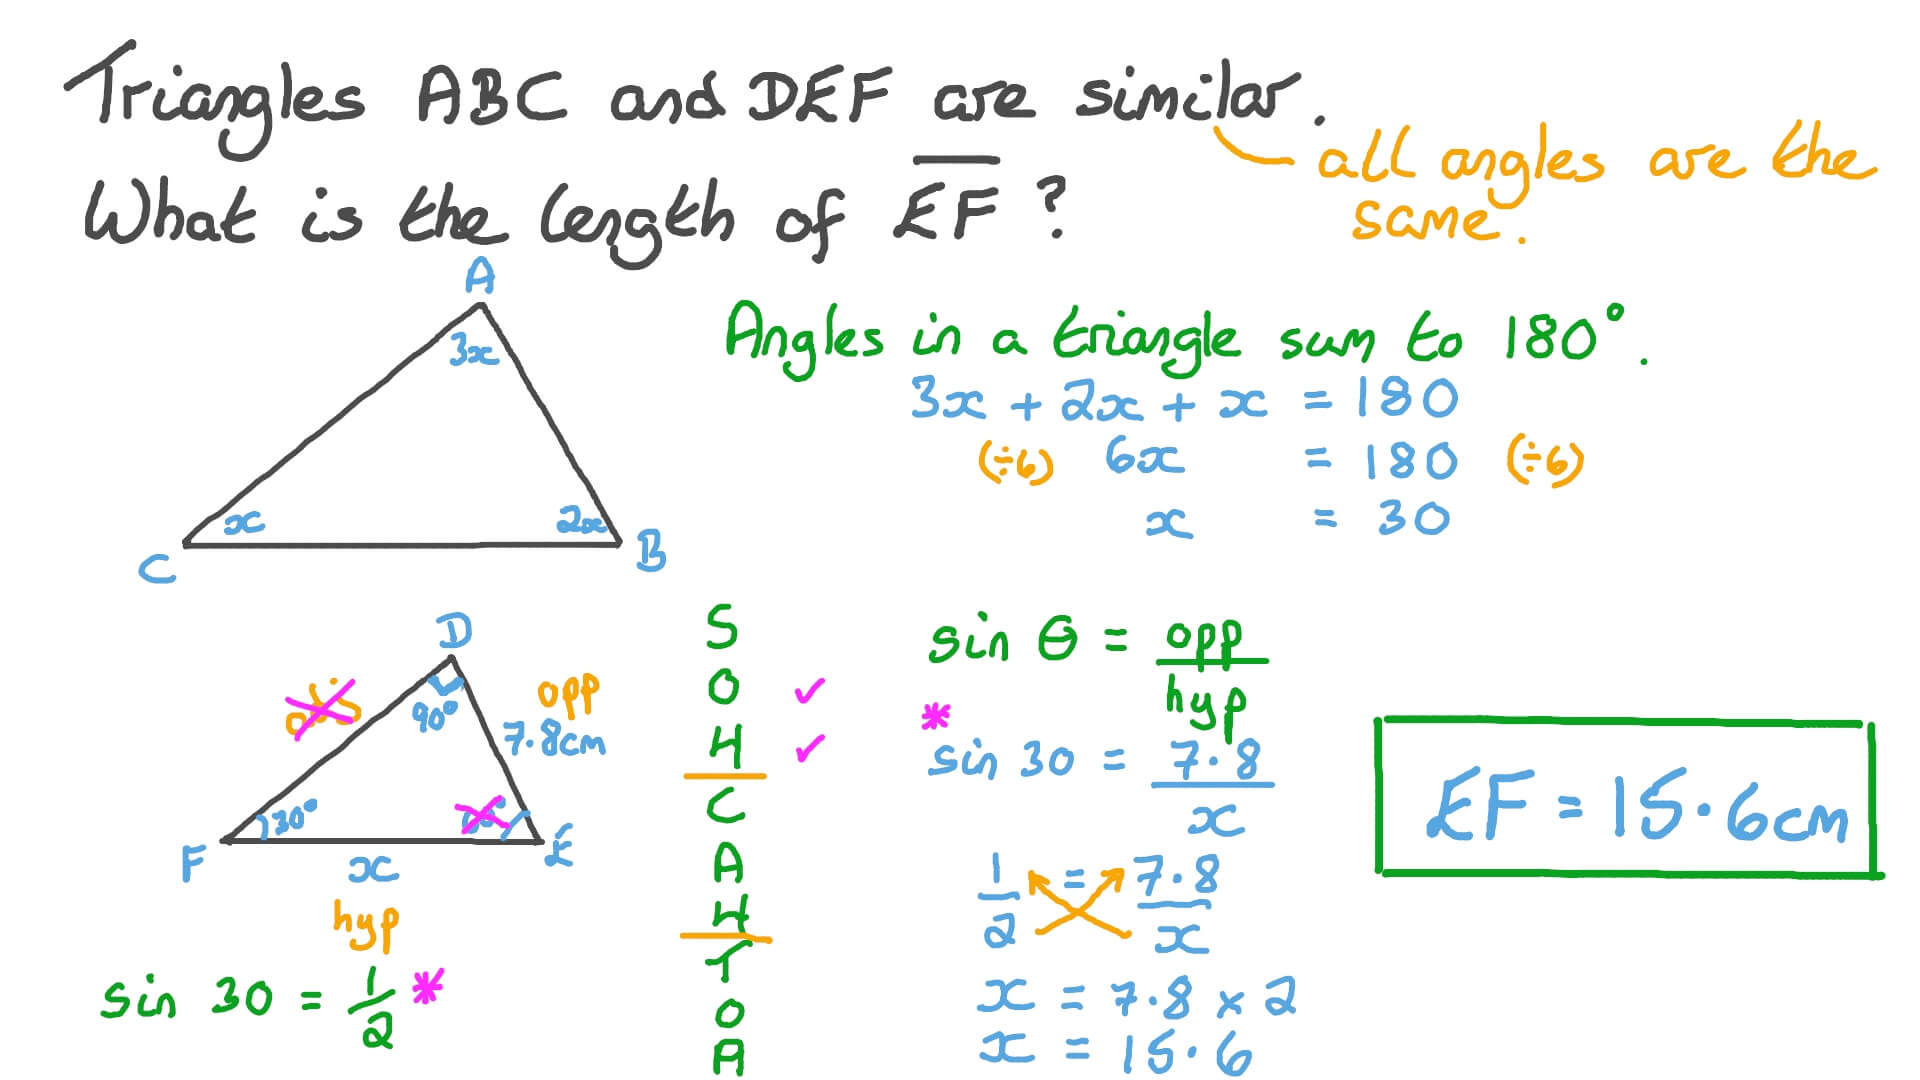 Triangles ABC and DEF are similar.
all angles are the
same.
What is the length of EF?
A
3x
x
2x
C
B
Angles in a triangle sum to 180°.
3x + 2x + x = 180
(÷6) 6x = 180 (÷6)
x = 30
D
90°
opp
7.8cm
30°
F
x
E
hyp
sin 30 = 1/2 *
S
O ✓
H ✓
C
A
H
T
O
A
sin θ = opp/hyp
*
sin 30 = 7.8/x
1/2 = 7.8/x
x = 7.8 × 2
x = 15.6
EF = 15.6cm